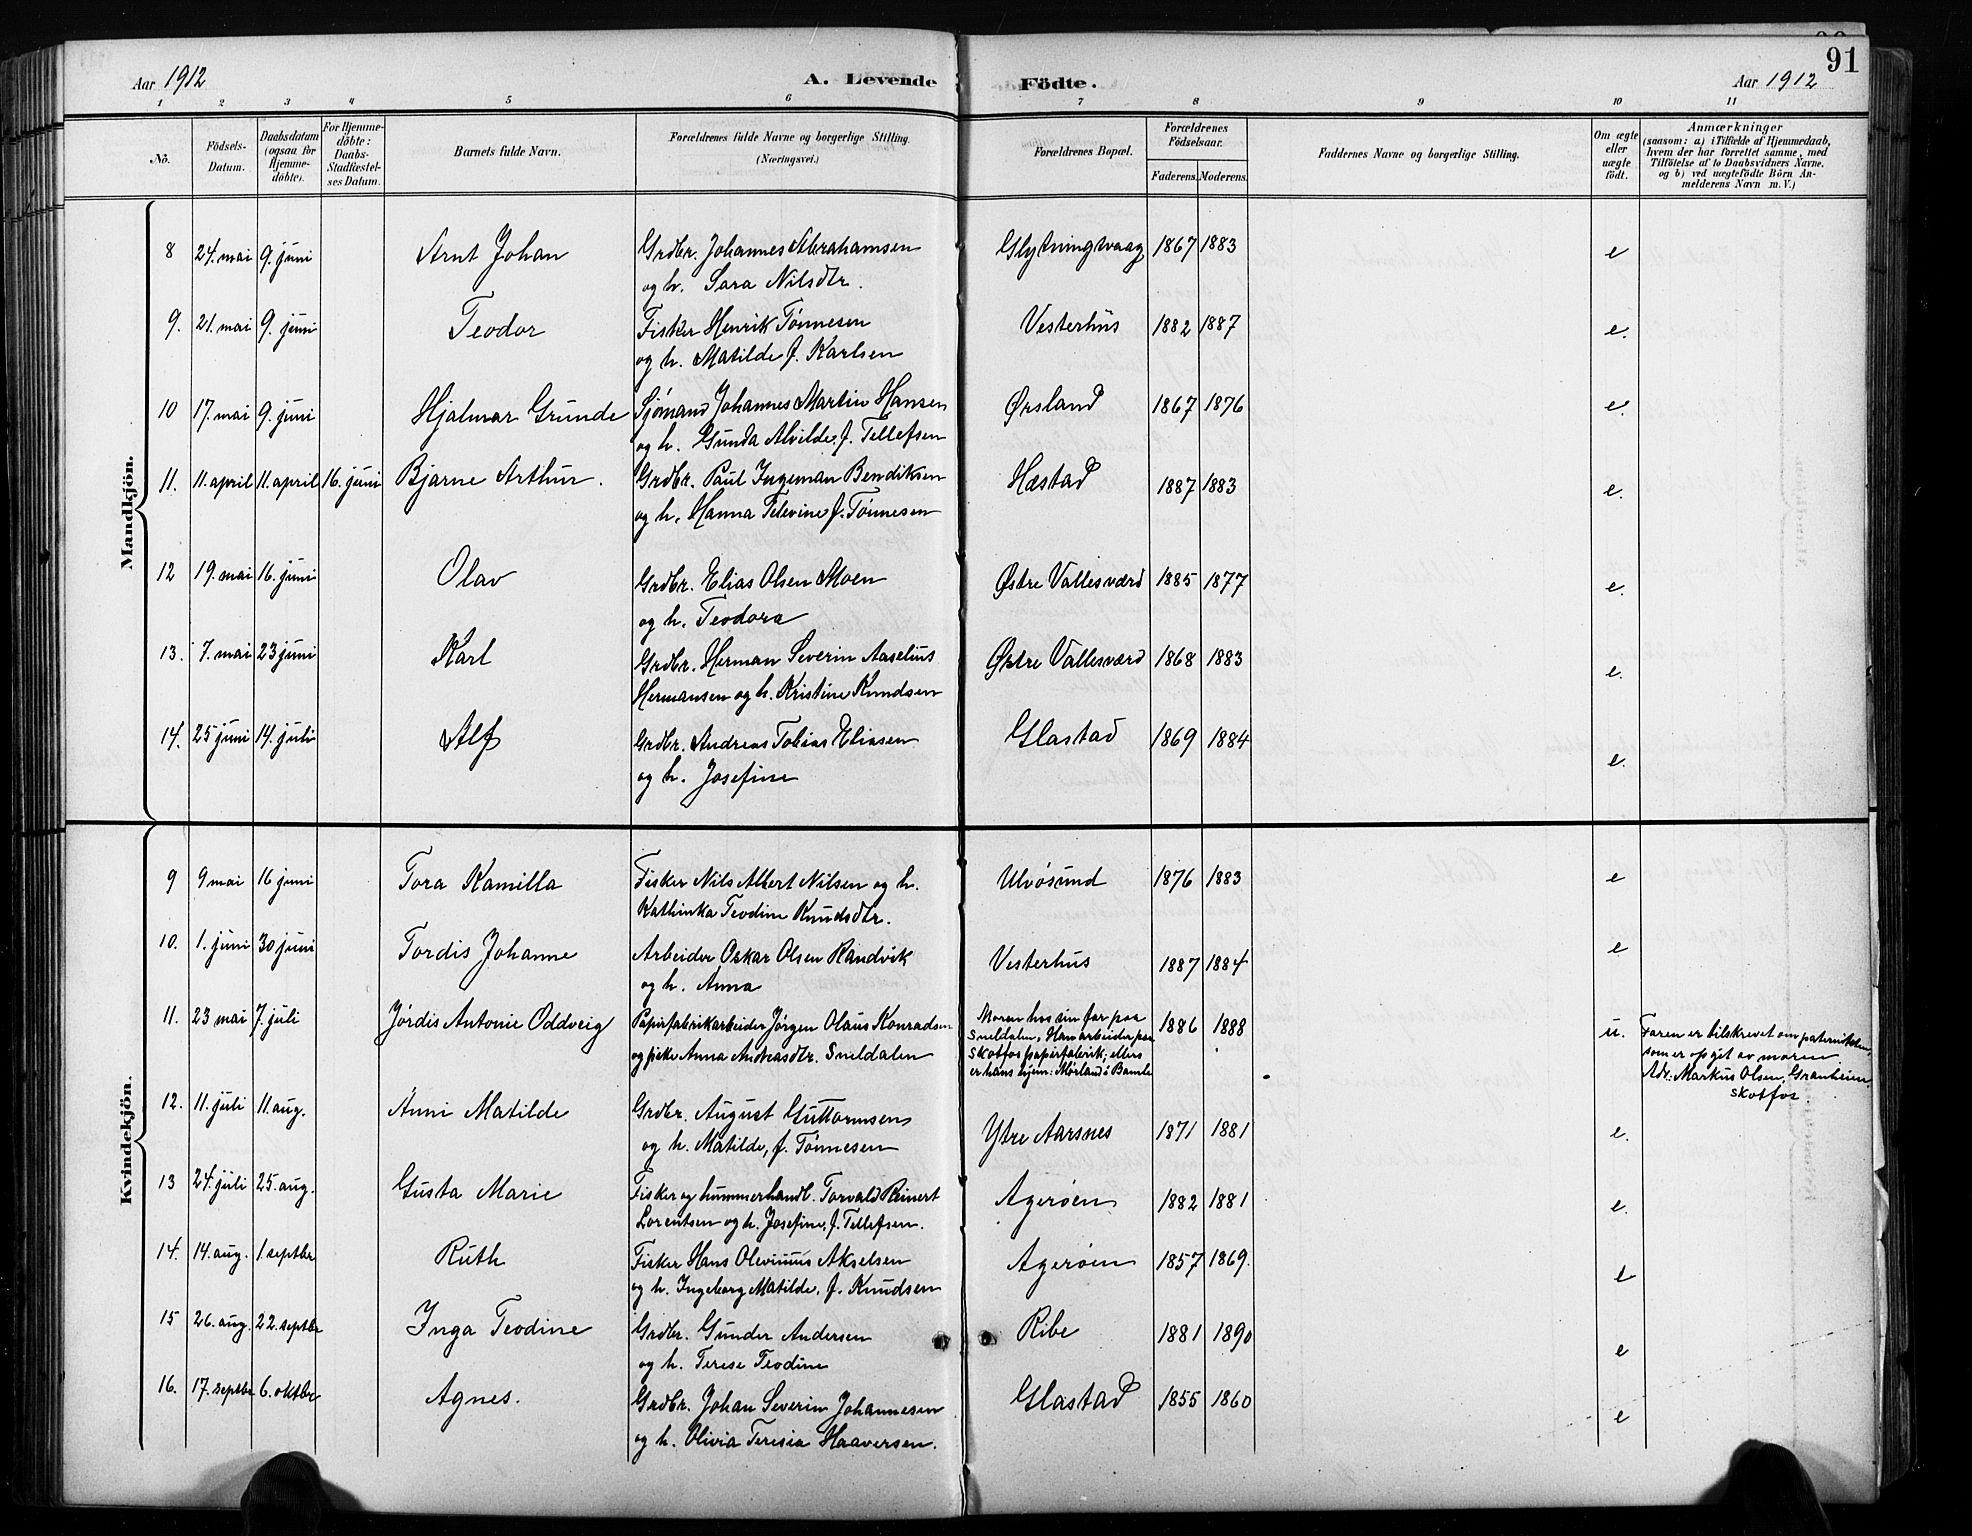 Aar 1912 A. Levende Födte. Aar 1912 91
1 2 3 4 5 6 7 8 9 10 11
No. Födsels-Datum. Daabsdatum (ogsaa for Hjemme-döbte). For Hjemme-döbte: Daabs-Stadfæstel-ses Datum. Barnets fulde Navn. Forældrenes fulde Navne og borgerlige Stilling. (Næringsvei.) Forældrenes Bopæl. Forældrenes Födselsaar. Faderens. Moderens. Faddernes Navne og borgerlige Stilling. Om ægte eller uægte födt. Anmærkninger (saasom: a) i Tilfælde af Hjemmedaab, hvem der har forrettet samme, med Tilföielse af to Daabsvidners Navne. og b) ved uægtefödte Börn An-melderens Navn m. V.)
Mandkjön.
8 24. mai 9. juni Arnt Johan Grdbr. Johannes Abrahamsen Glytningvaag 1867 1883 e
og h. Sara Nilsdtr.
9. 21. mai 9. juni Teodor Fisker Henrik Tönnesen Vesterhus 1882 1887 e.
og h. Matilde f. Karlsen
10 17. mai 9. juni Hjalmar Grunde Sjömand Johannes Martin Hansen Ørsland 1867 1876 e.
og h. Gunda Alvilde, f. Tellefsen
11. 11. april 11. april 16. juni Bjarne Arthur. Grdbr. Paul Ingeman Bendiksen Hæstad 1887 1883 e.
og h. Hanna Televine f. Tönnesen
12 19. mai 16. juni Olav Grdbr. Elias Olsen Moen Østre Vallesværd 1885 1877 e.
og h. Teodora
13. 7. mai 23 juni Karl Grdbr. Herman Severin Aaselius Østre Vallesværd 1868 1883 e.
Hermansen og h. Kristine Knudsen
14. 25 juni 14. juli Alf Grdbr. Andreas Tobias Eliasen Glastad 1869 1884 e.
og h. Josefine
Kvindekjön.
9 9 mai 16 juni Tora Kamilla Fisker Nils Albert Nilsen og h. Ulvösund 1876 1883 e
Kathinka Teodine Knudsdtr.
10. 1. juni 30 juni Tordis Johanne Arbeider Oskar Olsen Randvik Vesterhus 1887 1884 e
og h. Anna
11. 23 mai 7. juli Jórdis Antonie Oddveig Papirfabrikarbeider Jörgen Olaus Konradsen Moren hos sin far paa 1886 1888 u. Faren er tilskrevet om paterniteten,
og pike Anna Andreasdtr. Sneldalen Sneldalen, Han arbeider paa som er opgit av moren
Skotfos papirfabrik; ellers Adr: Markus Olsen, Granheim,
er hans hjem: Mörland i Bamle Skotfos.
12. 11. juli 11. aug. Anni Matilde Grdbr. August Guttormsen Ytre Aarsnes 1871 1881 e.
og h. Matilde, f. Tönnesen
13 24. juli 25. aug. Gusta Marie Fisker og hummerhandl. Torvald Reinert Ageröen 1882 1881 e.
Lorentsen og h. Josefine, f. Tellefsen.
14. 14. aug. 1. septbr Ruth Fisker Hans Olevinus Akselsen Ageröen 1857 1869. e
og h. Ingeborg Matilde, f. Knudsen
15 26. aug. 22. septbr Inga Teodine Grdbr. Gunder Andersen Ribe 1881 1890 e
og h. Terese Teodine
16. 17. septbr 6. oktbr Agnes. Grdbr. Johan Severin Johannesen Glastad 1855 1860 e
og h. Olivia Teresia Haaversen.